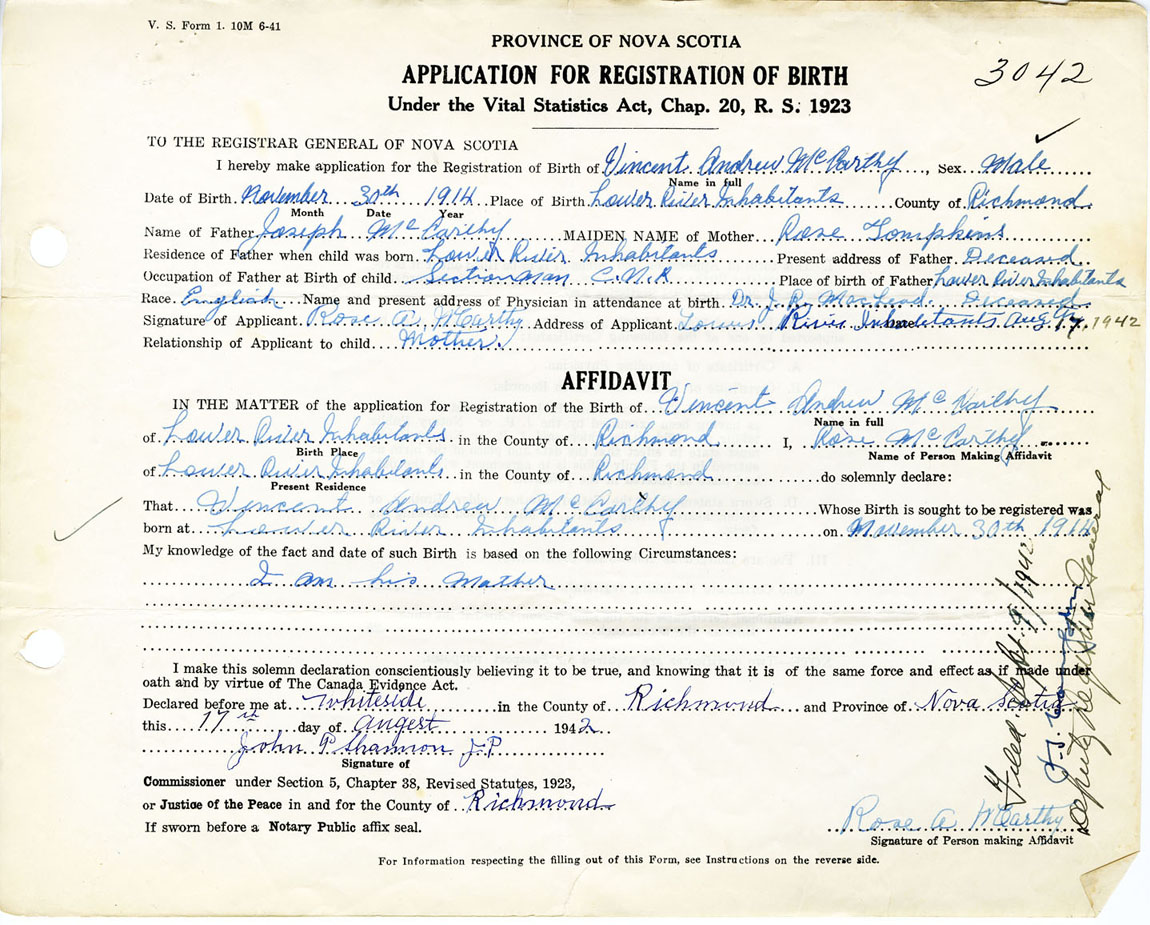 V. S. Form 1. 10M 6-41
PROVINCE OF NOVA SCOTIA
APPLICATION FOR REGISTRATION OF BIRTH
3042
Under the Vital Statistics Act, Chap. 20, R. S. 1923
TO THE REGISTRAR GENERAL OF NOVA SCOTIA
I hereby make application for the Registration of Birth of Vincent Andrew McCarthy, Sex Male
Name in full
Date of Birth November 30th 1914 Place of Birth Lower River Inhabitants County of Richmond
Month Date Year
Name of Father Joseph McCarthy MAIDEN NAME of Mother Rose Tompkins
Residence of Father when child was born Lower River Inhabitants Present address of Father Deceased
Occupation of Father at Birth of child Section Man C.N.R Place of birth of Father Lower River Inhabitants
Race English Name and present address of Physician in attendance at birth Dr. J. R. Deceased
Signature of Applicant Rose A McCarthy Address of Applicant Lower River Inhabitants Aug 17, 1942
Relationship of Applicant to child Mother
AFFIDAVIT
IN THE MATTER of the application for Registration of the Birth of Vincent Andrew McCarthy
Name in full
of Lower River Inhabitants in the County of Richmond I, Rose McCarthy
Birth Place Name of Person Making Affidavit
of Lower River Inhabitants in the County of Richmond do solemnly declare:
Present Residence
That Vincent Andrew McCarthy Whose Birth is sought to be registered was
born at Lower River Inhabitants on November 30th 1914
My knowledge of the fact and date of such Birth is based on the following Circumstances:
I am his Mother
I make this solemn declaration conscientiously believing it to be true, and knowing that it is of the same force and effect as if made under
oath and by virtue of The Canada Evidence Act.
Declared before me at Whiteside in the County of Richmond and Province of Nova Scotia
this 17th day of Augest 1942
John P Shannon J.P
Signature of
Commissioner under Section 5, Chapter 38, Revised Statutes, 1923,
or Justice of the Peace in and for the County of Richmond
If sworn before a Notary Public affix seal.
Rose A McCarthy
Signature of Person making Affidavit
For Information respecting the filling out of this Form, see Instructions on the reverse side.
Filed Sept. 9/1942
Deputy Registrar General